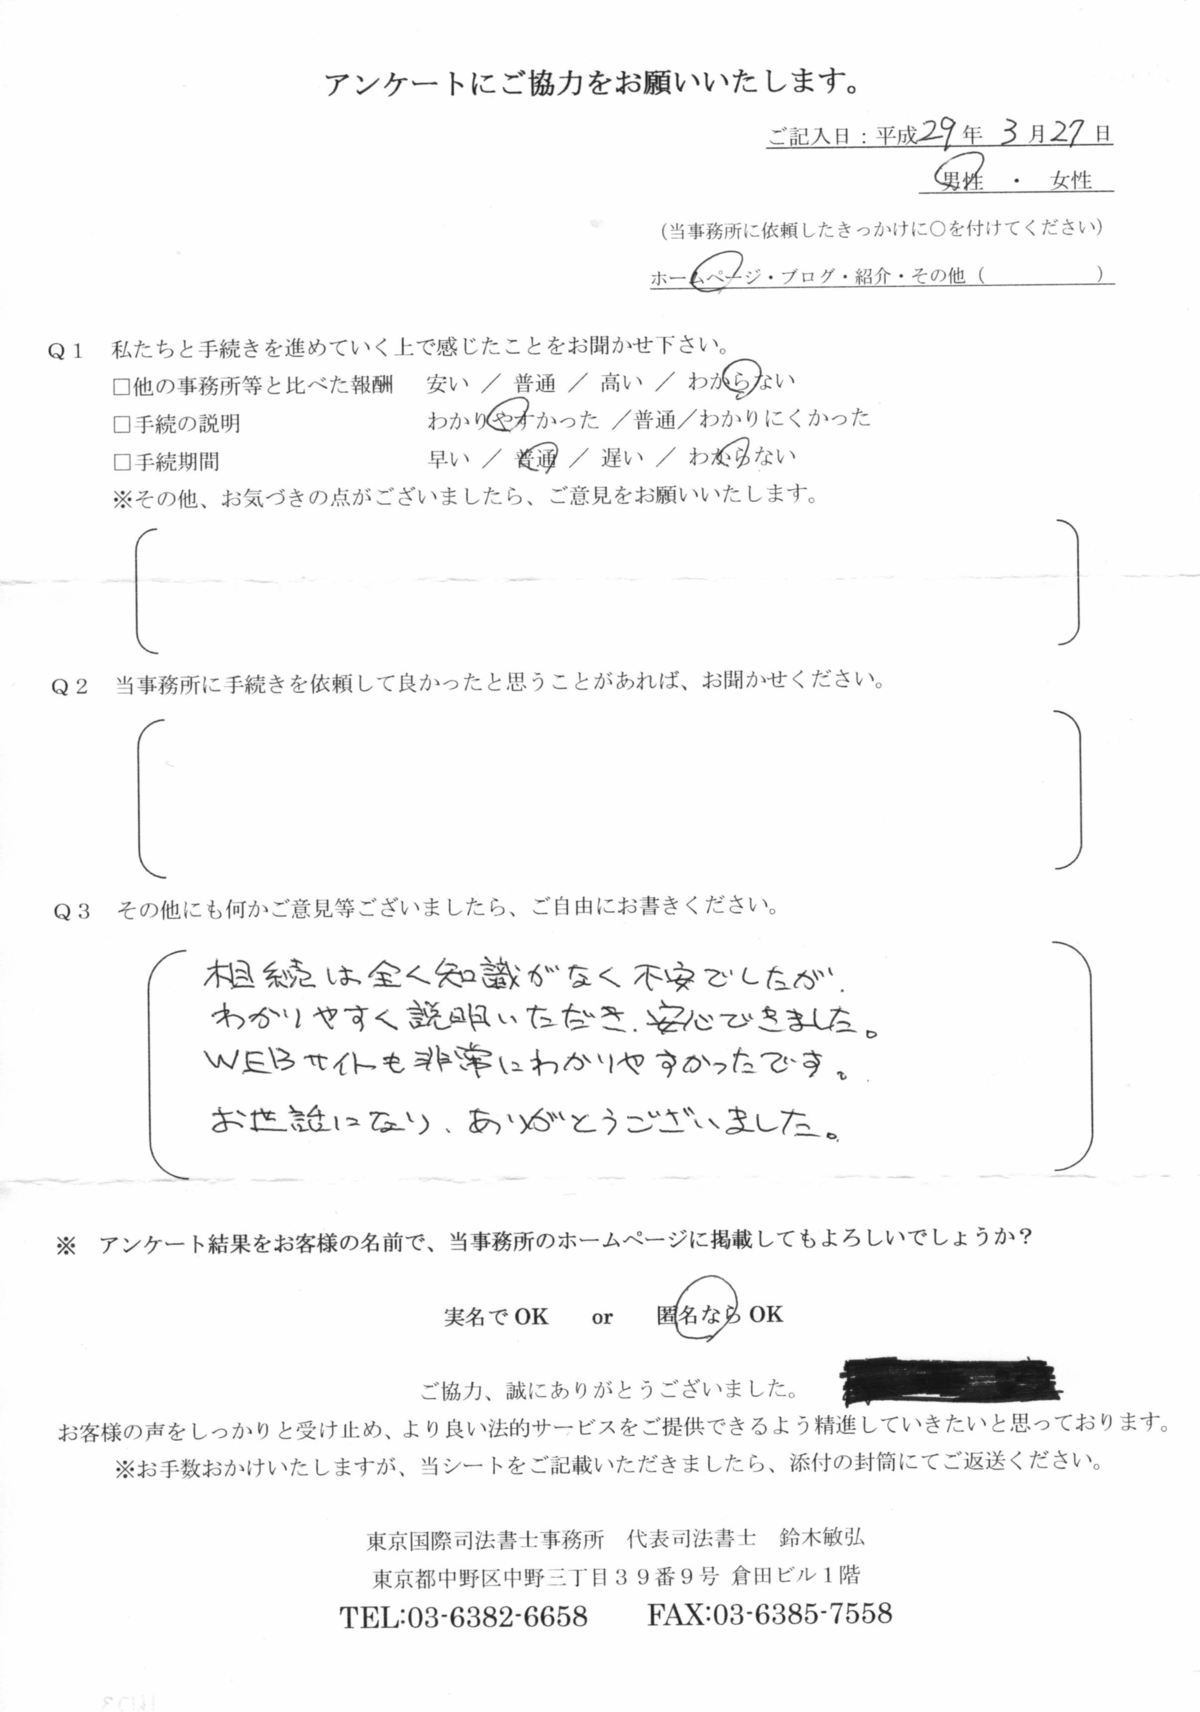 アンケートにご協力をお願いいたします。
ご記入日：平成29年 3月27日
男性 ・ 女性
（当事務所に依頼したきっかけに○を付けてください）
ホームページ・ブログ・紹介・その他（　　　　　）
Q１ 私たちと手続きを進めていく上で感じたことをお聞かせ下さい。
□他の事務所等と比べた報酬 安い ／ 普通 ／ 高い ／ わからない
□手続の説明 わかりやすかった ／普通／わかりにくかった
□手続期間 早い ／ 普通 ／ 遅い ／ わからない
※その他、お気づきの点がございましたら、ご意見をお願いいたします。
Q２ 当事務所に手続きを依頼して良かったと思うことがあれば、お聞かせください。
Q３ その他にも何かご意見等ございましたら、ご自由にお書きください。
相続は全く知識がなく不安でしたが、
わかりやすく説明いただき、安心できました。
WEBサイトも非常にわかりやすかったです。
お世話になり、ありがとうございました。
※ アンケート結果をお客様の名前で、当事務所のホームページに掲載してもよろしいでしょうか？
実名でOK or 匿名ならOK
ご協力、誠にありがとうございました。
お客様の声をしっかりと受け止め、より良い法的サービスをご提供できるよう精進していきたいと思っております。
※お手数おかけいたしますが、当シートをご記載いただきましたら、添付の封筒にてご返送ください。
東京国際司法書士事務所 代表司法書士 鈴木敏弘
東京都中野区中野三丁目３９番９号 倉田ビル１階
TEL:03-6382-6658 FAX:03-6385-7558